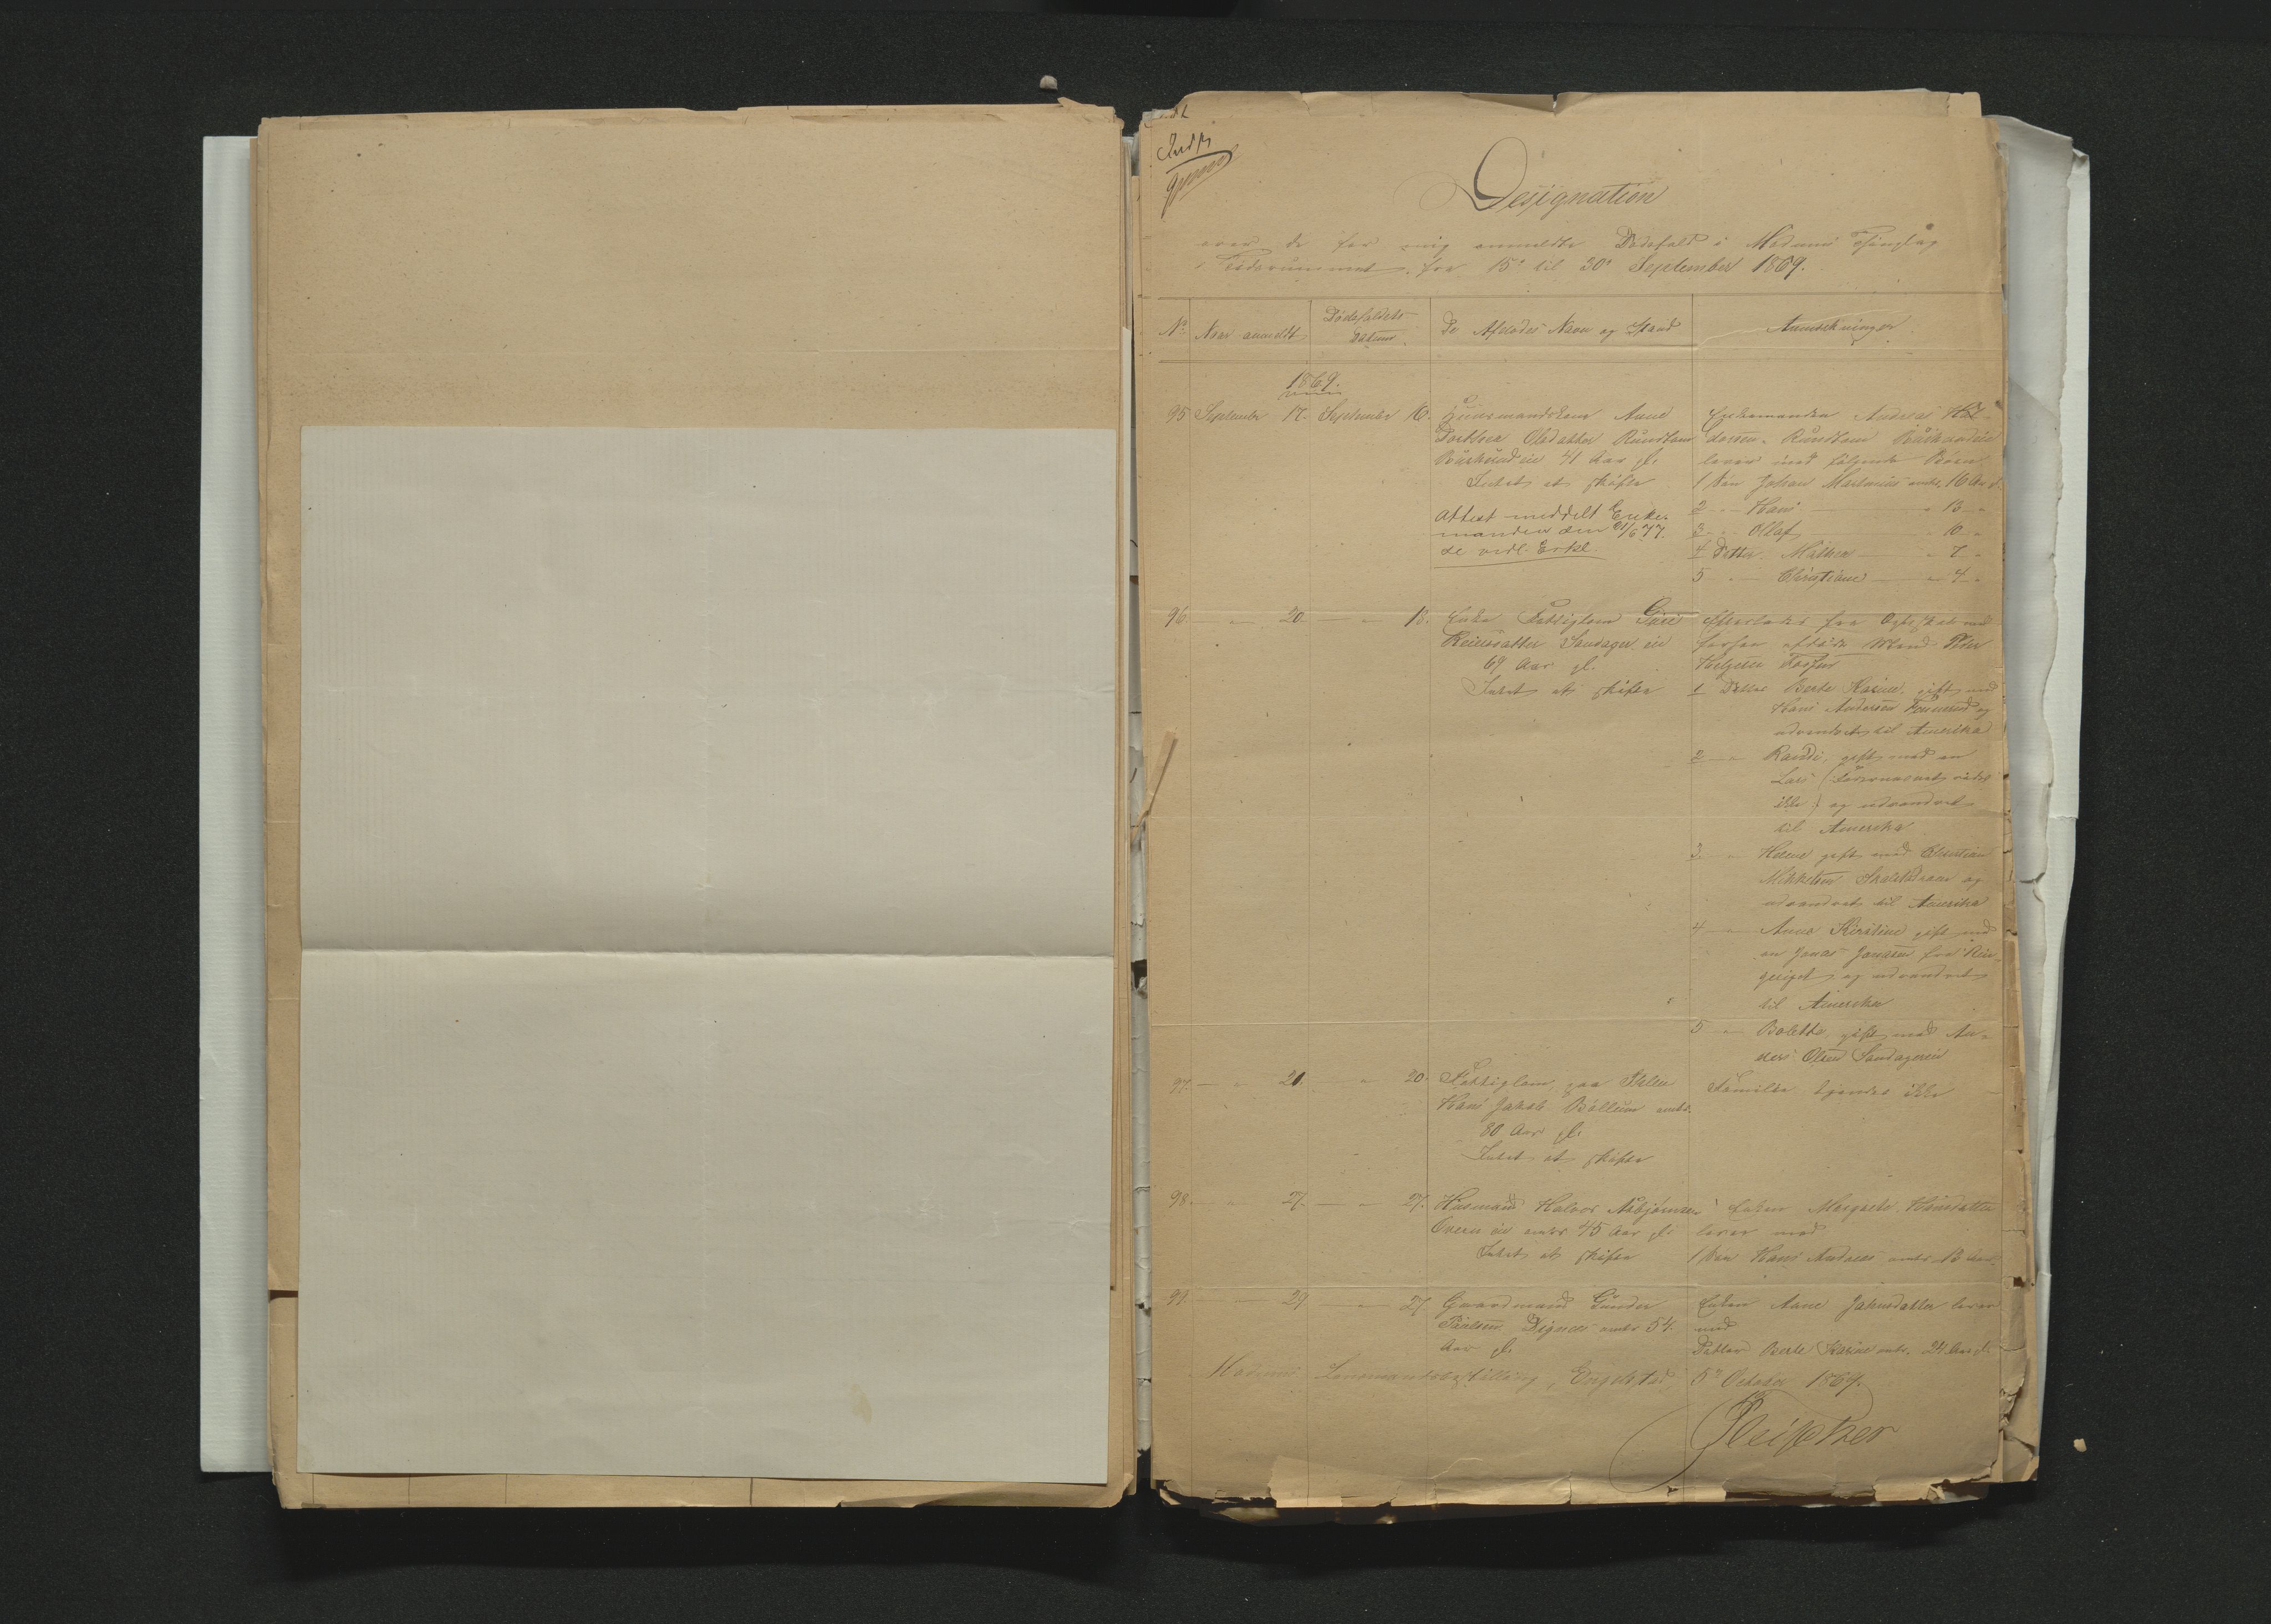 Indf
Designation
over de for mig anmeldte Dødsfald i Modums Thinglag
i Tidsrummet fra 15de til 30de September 1869.
No
Naar anmeldt
Dødsfaldets Datum
De Afdødes Navn og Stand
Anmærkninger
1869.
95 September 17. September 16.
Huusmandskone Anne
Olsdatter Rundtom
41 Aar gl.
Intet at skifte
Attest meddelt Enke-
manden den 21/6 77.
Enkemanden Andreas Hal-
Rundtom
lever med følgende Børn
1 Søn Johan Martinius omtr. 16 Aar
2 " Hans " 13 "
3 " Ollaf " 10 "
4 Datter Mathea " 7 "
5 " Christiane " 4 "
96. " 20 " 18.
Enke Fattiglem Guri
Reiersdatter Sandager eie
69 Aar gl.
Intet at skifte
Efterlader fra Ægteskab med
forhen afdøde Mand Peder
Helgesen
1 Datter Berte Karine, gift med
Hans Andersen og
udvandret til Amerika
2 " Randi gift med en
Lars (Farsnavnet vides
ikke) og udvandret
til Amerika
3 " Helene gift med Christian
Mikkelsen og
udvandret til Amerika
4 " Anne Kirstine gift med
en Jonas Jonasen fra Rin-
gerige og udvandret
til Amerika
5 " Bolette gift med An-
ders Olsen Sandagereie
97. " 21. " 20.
Fattiglem paa
Hans Jakob Bøllum omtr.
80 Aar gl.
Intet at skifte
Familie kjendes ikke
98. " 27. " 27.
Husmand Halvor Asbjørnsen
Overn eie omtr 45 Aar gl.
Intet at skifte
Enken Margrethe Hansdatter
lever med
1 Søn Hans Andreas omtr. 13 Aar.
99. " 29 " 27
Gaardmand Gunder
Paulsen Dignes omtr 54.
Aar gl.
Enken Anne Jakobsdatter lever
med
Datter Berte Karine omtr. 24 Aar gl.
Modums Lensmandsbestilling, Engelstad, 5te October 1869.